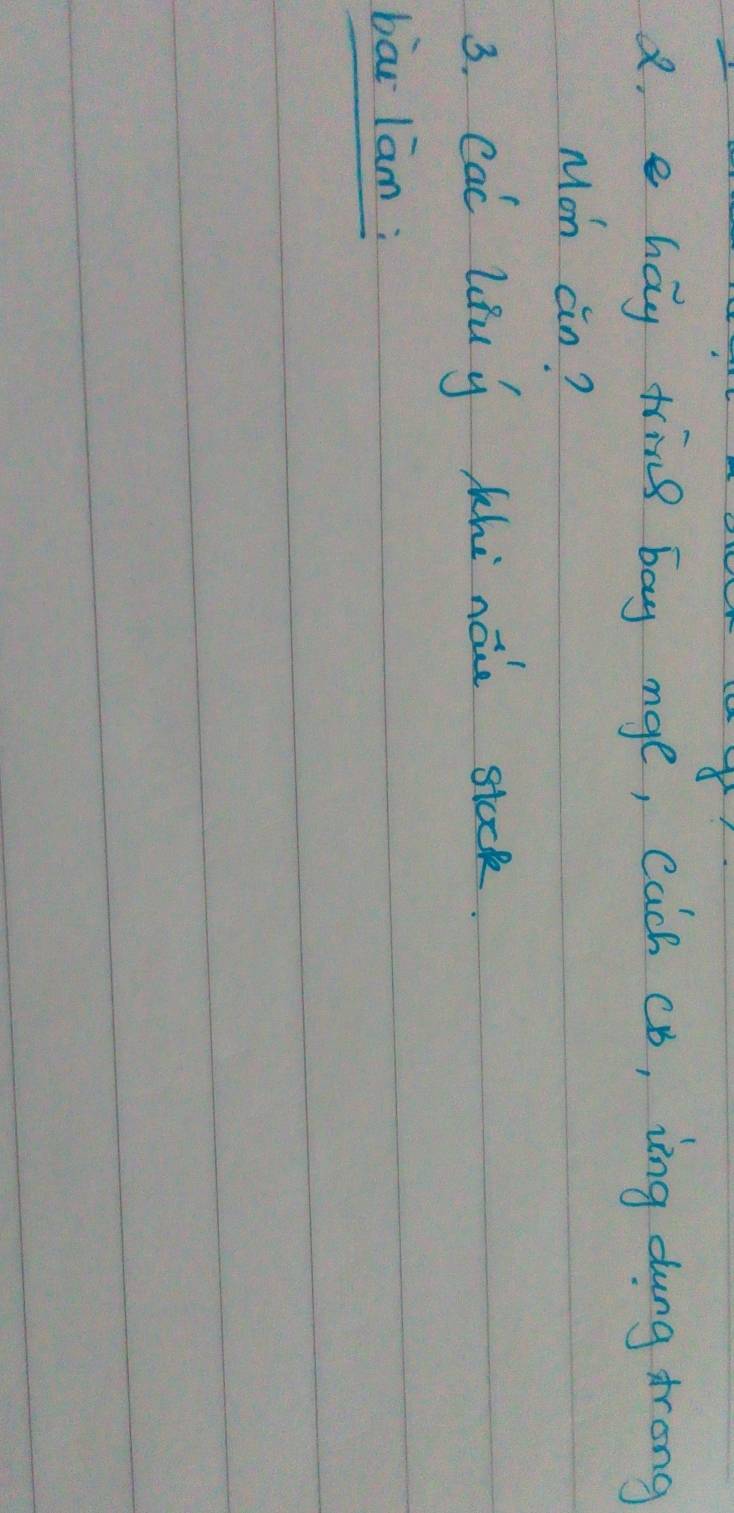 2. e hãy trình bày ngl, Cách CB, ứng dụng trong
Món ăn?
3. Các lưu ý khi nấu stock.
bài làm: